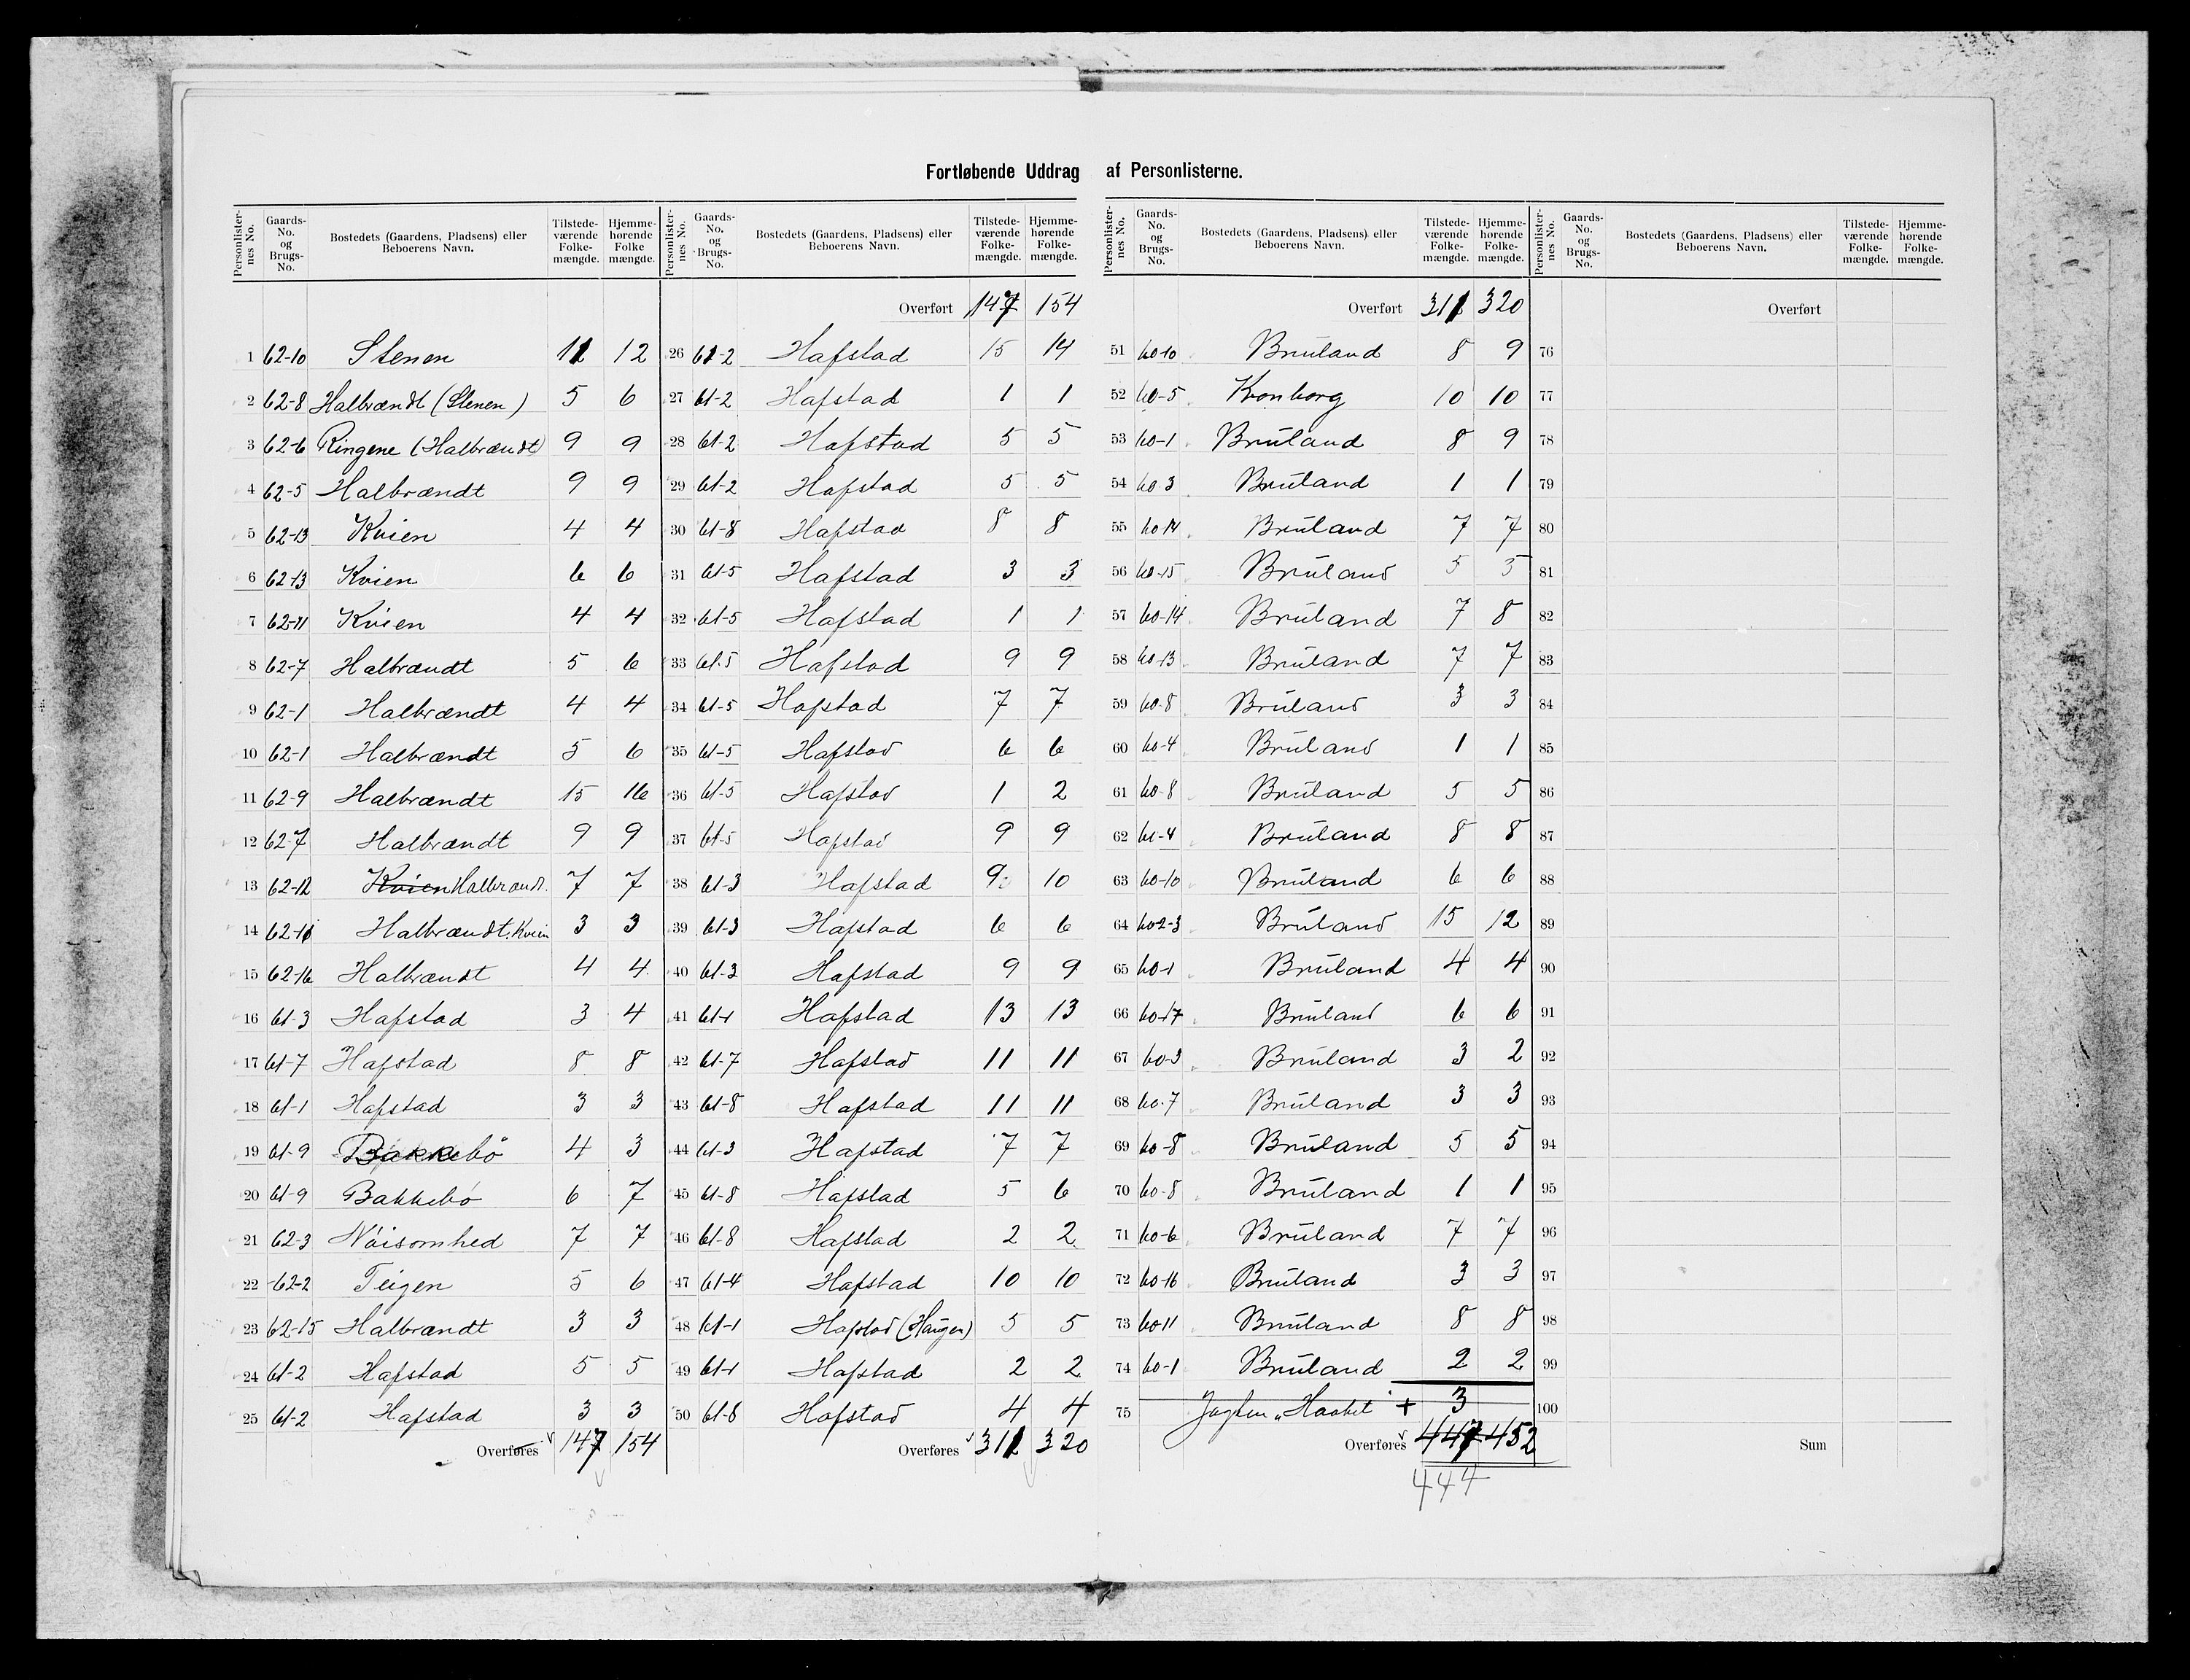 Fortløbende Uddrag af Personlisterne.
Personlister-nes No. Gaards-No. og Brugs-No. Bostedets (Gaardens, Pladsens) eller Beboerens Navn. Tilstede-værende Folke-mængde. Hjemme-hørende Folke mængde.
1 62-10 Stenen 11 12
2 62-8 Halbrændt (Stenen) 5 6
3 62-6 Ringene (Halbrændt) 9 9
4 62-5 Halbrændt 9 9
5 62-13 Kvien 4 4
6 62-13 Kvien 6 6
7 62-11 Kvien 4 4
8 62-7 Halbrændt 5 6
9 62-1 Halbrændt 4 4
10 62-1 Halbrændt 5 6
11 62-9 Halbrændt 15 16
12 62-7 Halbrændt 9 9
13 62-12 Kvien Halbrændt. 7 7
14 62-11 Halbrændt. Kvien 3 3
15 62-16 Halbrændt 4 4
16 61-3 Hafstad 3 4
17 61-7 Hafstad 8 8
18 61-1 Hafstad 3 3
19 61-9 Bakkebö 4 3
20 61-9 Bakkebö 6 7
21 62-3 Nöisomhed 7 7
22 62-2 Teigen 5 6
23 62-15 Halbrændt 3 3
24 61-2 Hafstad 5 5
25 61-2 Hafstad 3 3
Overføres 147 154
Personlister-nes No. Gaards-No. og Brugs-No. Bostedets (Gaardens, Pladsens) eller Beboerens Navn. Tilstede-værende Folke-mængde. Hjemme-hørende Folke-mængde.
Overført 147 154
26 61-2 Hafstad 15 14
27 61-2 Hafstad 1 1
28 61-2 Hafstad 5 5
29 61-2 Hafstad 5 5
30 61-8 Hafstad 8 8
31 61-5 Hafstad 3 3
32 61-5 Hafstad 1 1
33 61-5 Hafstad 9 9
34 61-5 Hafstad 7 7
35 61-5 Hafstad 6 6
36 61-5 Hafstad 1 2
37 61-5 Hafstad 9 9
38 61-3 Hafstad 9 10
39 61-3 Hafstad 6 6
40 61-3 Hafstad 9 9
41 61-1 Hafstad 13 13
42 61-7 Hafstad 11 11
43 61-8 Hafstad 11 11
44 61-3 Hafstad 7 7
45 61-8 Hafstad 5 6
46 61-8 Hafstad 2 2
47 61-4 Hafstad 10 10
48 61-1 Hafstad (Haugen) 5 5
49 61-1 Hafstad 2 2
50 61-8 Hafstad 4 4
Overføres 311 320
Personlister-nes No. Gaards-No. og Brugs-No. Bostedets (Gaardens, Pladsens) eller Beboerens Navn. Tilstede-værende Folke-mængde. Hjemme-hørende Folke-mængde.
Overført 311 320
51 60-10 Bruland 8 9
52 60-5 Kronborg 10 10
53 60-1 Bruland 8 9
54 60-3 Bruland 1 1
55 60-14 Bruland 7 7
56 60-15 Bruland 5 5
57 60-14 Bruland 7 8
58 60-13 Bruland 7 7
59 60-8 Bruland 3 3
60 60-4 Bruland 1 1
61 60-8 Bruland 5 5
62 60-4 Bruland 8 8
63 60-10 Bruland 6 6
64 60-2-3 Bruland 15 12
65 60-1 Bruland 4 4
66 60-17 Bruland 6 6
67 60-3 Bruland 3 2
68 60-7 Bruland 3 3
69 60-8 Bruland 5 5
70 60-8 Bruland 1 1
71 60-6 Bruland 7 7
72 60-16 Bruland 3 3
73 60-11 Bruland 8 8
74 60-1 Bruland 2 2
75 Jagten "Haabet" + 3
Overføres 447 452
444
Personlister-nes No. Gaards-No. og Brugs-No. Bostedets (Gaardens, Pladsens) eller Beboerens Navn. Tilstede-værende Folke-mængde. Hjemme-hørende Folke-mængde.
Overført
76
77
78
79
80
81
82
83
84
85
86
87
88
89
90
91
92
93
94
95
96
97
98
99
100
Sum